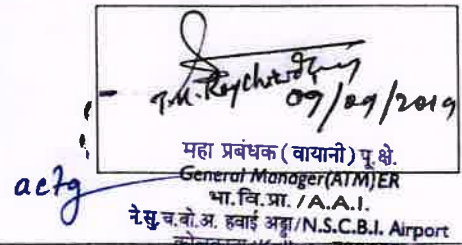 T.M. Raychaudhury
09/09/2019
actg
महा प्रबंधक (वायानी) पू.क्षे.
General Manager(ATM)ER
भा.वि.प्रा. /A.A.I.
ने.सु.च.बो.अ. हवाई अड्डा/N.S.C.B.I. Airport